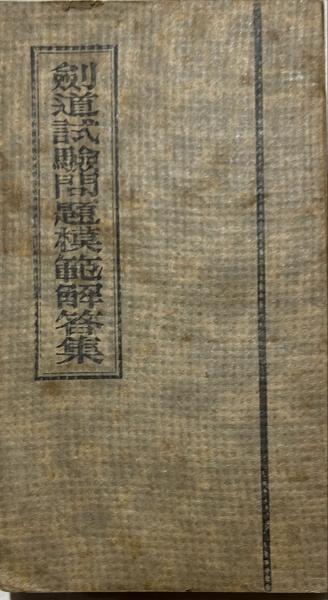 劍道試驗問題模範解答集